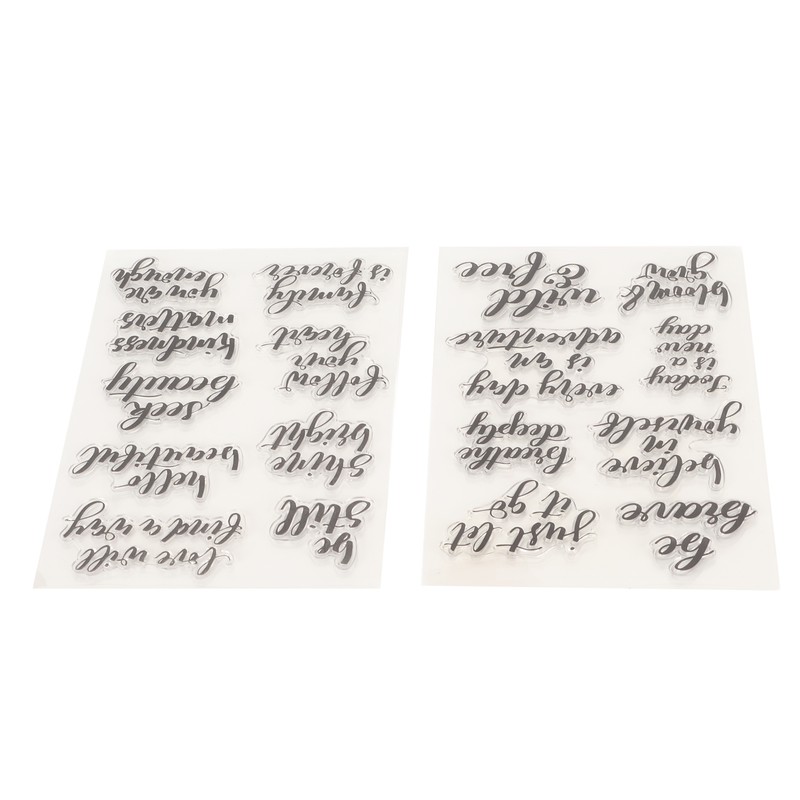 be
brave
just let
it go
believe
in
yourself
breathe
deeply
today
is a
new
day
every day
is an
adventure
bloom &
grow
wild
& free
be
still
love will
find a way
shine
bright
hello
beautiful
follow
your
heart
seek
beauty
kindness
matters
family
is forever
you are
enough